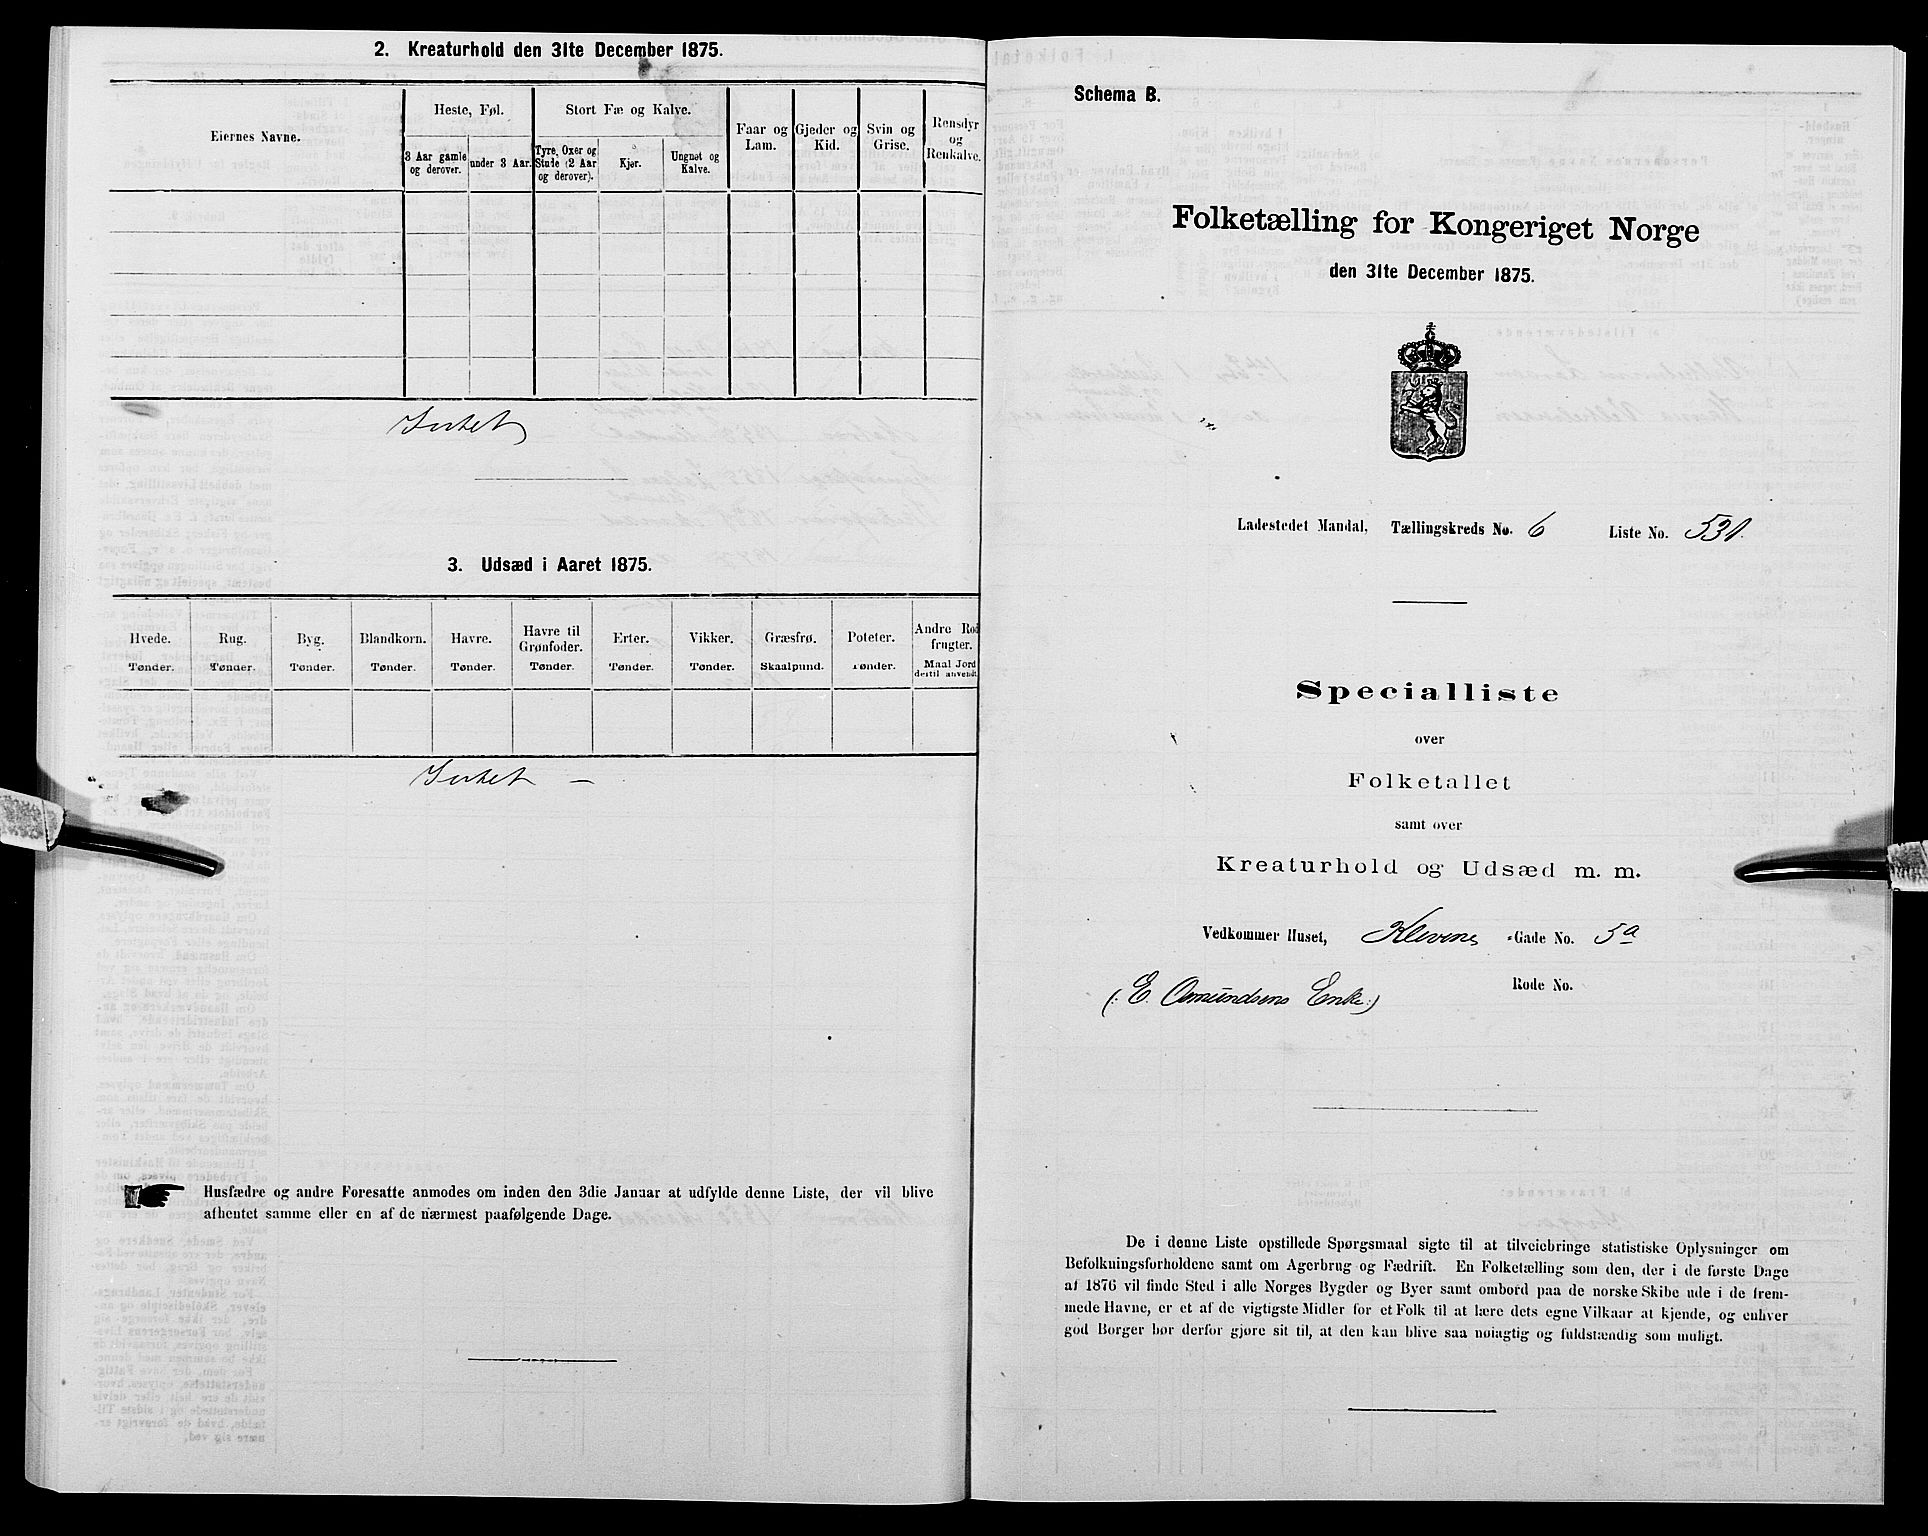 2. Kreaturhold den 31te December 1875.
Eiernes Navne.
Heste, Føl.
Stort Fæ og Kalve.
Faar og Lam.
Gjeder og Kid.
Svin og Grise.
Rensdyr og Renkalve.
3 Aar gamle og derover.
under 3 Aar.
Tyre, Oxer og Stude (2 Aar og derover).
Kjør.
Ungnøt og Kalve.
Intet
3. Udsæd i Aaret 1875.
Hvede. Tønder.
Rug. Tønder.
Byg. Tønder.
Blandkorn. Tønder.
Havre. Tønder.
Havre til Grønfoder. Tønder.
Erter. Tønder.
Vikker. Tønder.
Græsfrø. Skaalpund.
Poteter. Tønder.
Andre Rodfrugter. Maal Jord dertil anvendt.
Intet —
Husfædre og andre Foresatte anmodes om inden den 3die Januar at udfylde denne Liste, der vil blive
afhentet samme eller en af de nærmest paafølgende Dage.
Schema B.
Folketælling for Kongeriget Norge
den 31te December 1875.
Ladestedet Mandal, Tællingskreds No. 6 Liste No. 531.
Specialliste
over
Folketallet
samt over
Kreaturhold og Udsæd m. m.
Vedkommer Huset, Klevens -Gade No. 5a
(: E. Osmundsens Enke :) Rode No.
De i denne Liste opstillede Spørgsmaal sigte til at tilveiebringe statistiske Oplysninger om
Befolkningsforholdene samt om Agerbrug og Fædrift. En Folketælling som den, der i de første Dage
af 1876 vil finde Sted i alle Norges Bygder og Byer samt ombord paa de norske Skibe ude i de frem-
mede Havne, er et af de vigtigste Midler for et Folk til at lære dets egne Vilkaar at kjende, og enhver
god Borger bør derfor gjøre sit til, at den kan blive saa nøiagtig og fuldstændig som muligt.